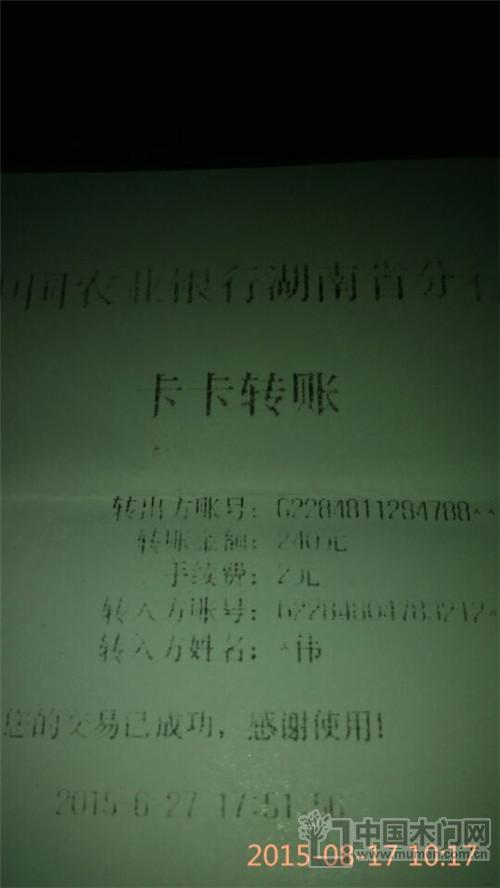 中国农业银行湖南省分行
卡卡转账
转出方账号：62284811284788**
转账金额：240元
手续费：2元
转入方账号：62284804783212*
转入方姓名：*伟
您的交易已成功，感谢使用！
2015-6-27 17:51:56
中国木门网
2015-08-17 10:17
www.mumen.com.cn